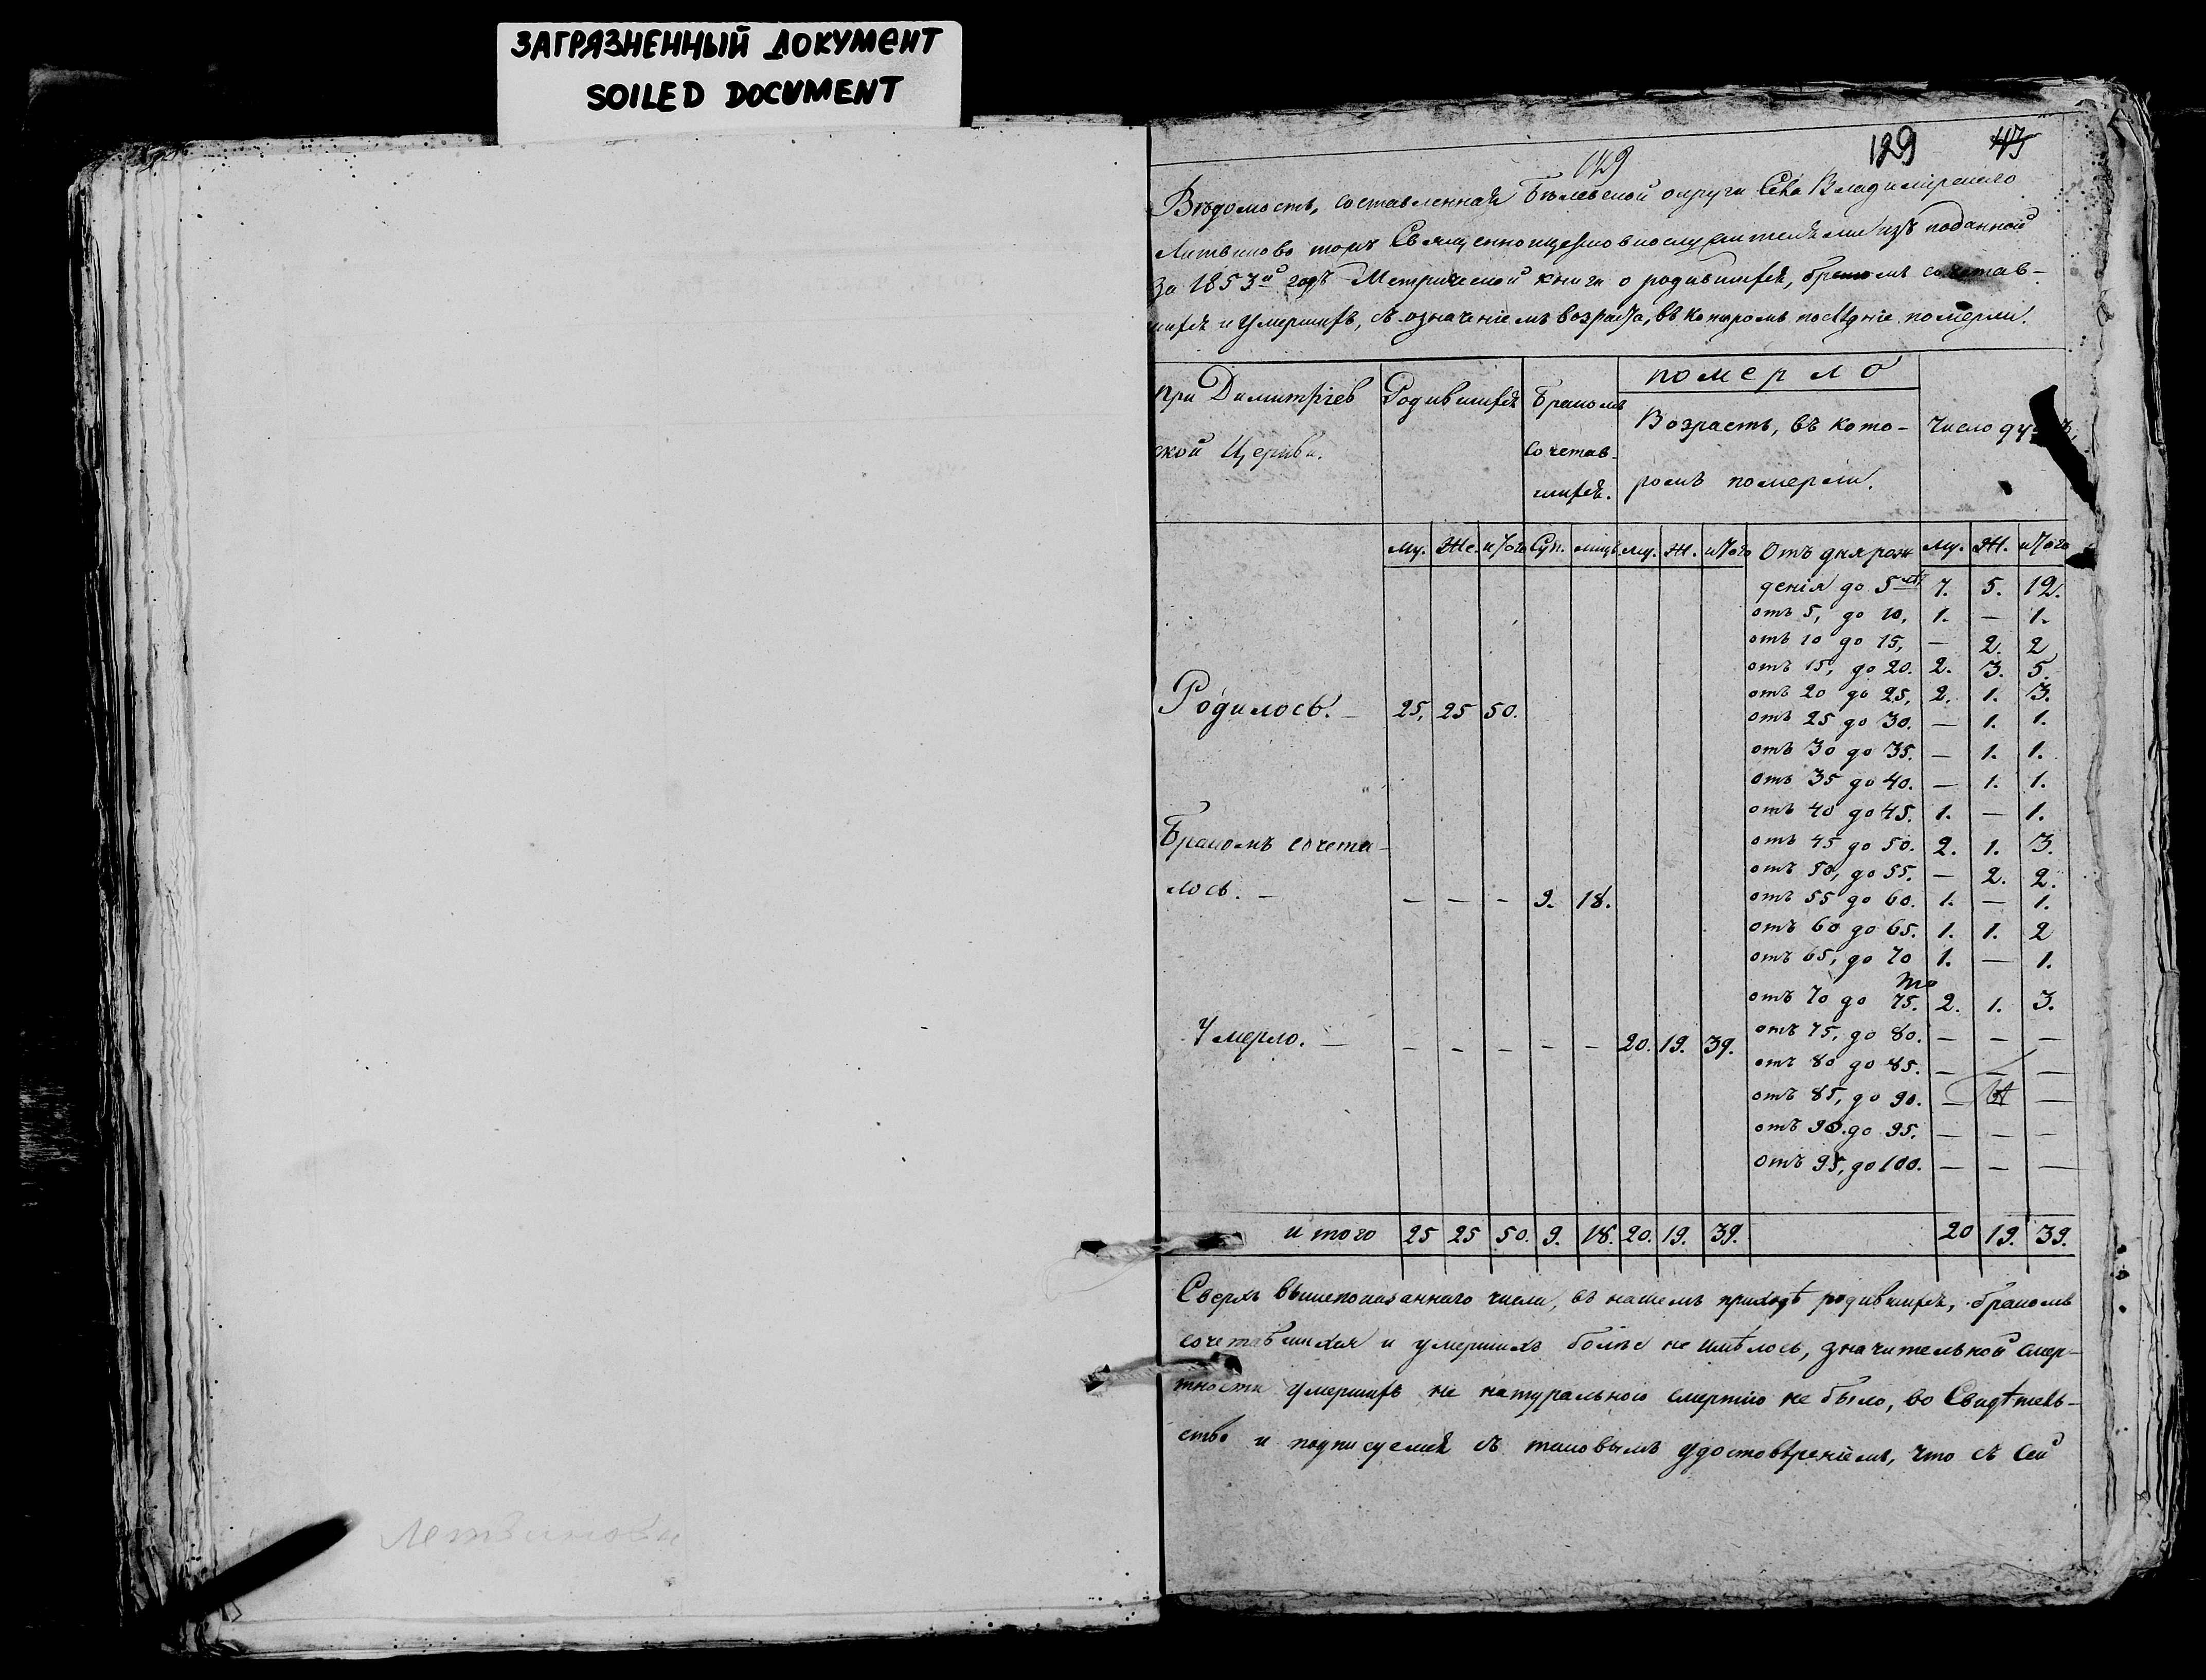 ЗАГРЯЗНЕННЫЙ ДОКУМЕНТ
SOILED DOCUMENT
129 43
129
Вѣдомость, составленная Бѣлевской округи Села Владимірскаго
Литвиново тожъ Священноцерковнослужителями изъ поданной
За 1853й годъ Метрической книги о родившихся, бракомъ сочетав-
шихся и умершихъ, съ означеніемъ возраста, въ которомъ послѣдніе померли.
при Димитріев
ской Церкви.
Родившихся
Бракомъ
сочетав-
шихся.
померло
Возрастъ, въ кото-
ромъ померли.
Число душъ,
му. Же. итого Суп. лицъ му. Ж. итого Отъ дня рож му. Ж. итого
денія до 5 лѣт 7. 5. 12.
отъ 5, до 10, 1. — 1.
отъ 10 до 15, — 2. 2
отъ 15, до 20. 2. 3. 5.
отъ 20 до 25, 2. 1. 3.
Родилось. — 25, 25 50.
отъ 25 до 30. — 1. 1.
отъ 30 до 35. — 1. 1.
отъ 35 до 40. — 1. 1.
отъ 40 до 45. 1. — 1.
Бракомъ сочета-
отъ 45 до 50. 2. 1. 3.
отъ 50, до 55. — 2. 2.
лось. — — — — 9. 18.
отъ 55 до 60. 1. — 1.
отъ 60 до 65. 1. 1. 2
отъ 65, до 70 1. — 1.
отъ 70 до 75. 2. 1. 3.
Умерло. — — — — — — 20. 19. 39.
отъ 75, до 80. — — —
отъ 80 до 85. — — —
отъ 85, до 90. — —
отъ 90. до 95. — — —
Отъ 95, до 100. — — —
итого 25 25 50. 9. 18. 20. 19. 39. 20 19. 39.
Сверхъ вышепоказаннаго числа, въ нашемъ приходѣ родившихся, бракомъ
сочетавшихся и умершихъ болѣе не имѣлось, значительной смер-
тности умершихъ не натуральною смертію не было, во Свидѣтель-
ство и подписуемся съ таковымъ удостовѣреніемъ, что съ сей
Летвинова